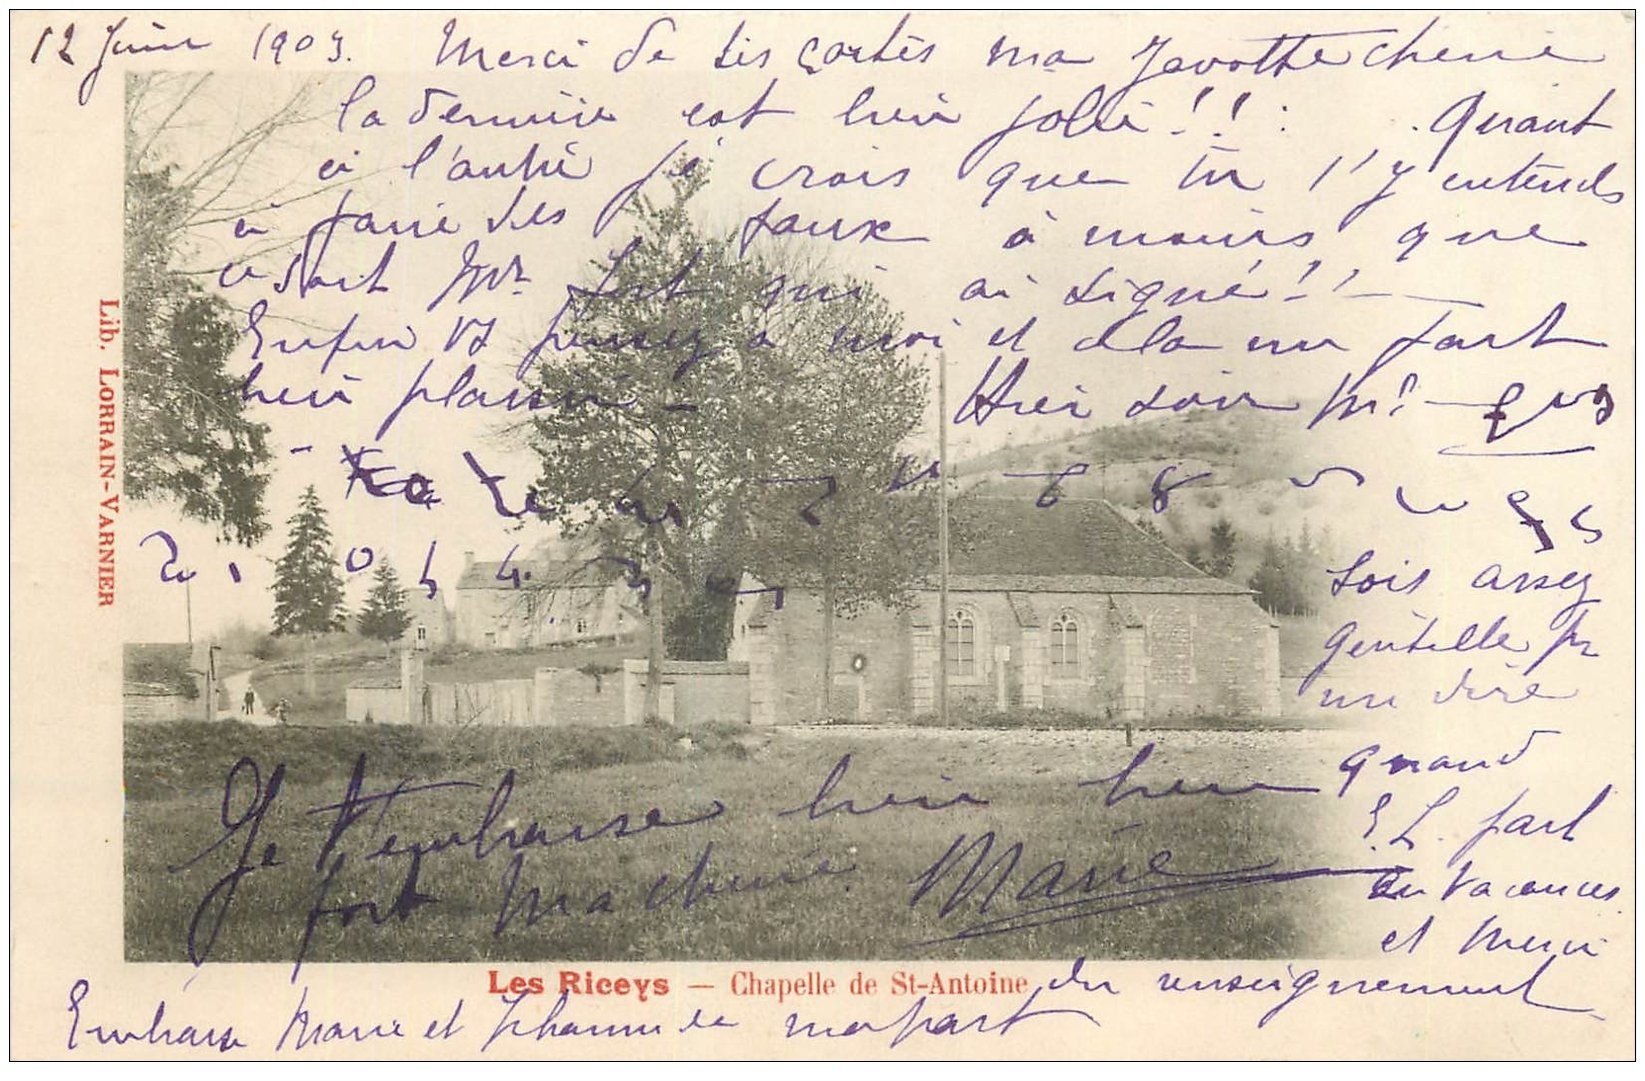 12 Juin 1903. Merci de tes cartes ma Javotte cherie
la dernière est bien jolie!!! Quant
à l'autre je crois que tu t'y entends
à faire des faux à moins que
ce soit Mr qui ai signé!!
Enfin vs pensez à moi et cela me fait
bien plaisir - Hier soir Mr
Sois assez
gentille pr
me dire
quand
E. L. part
en vacances
et merci
du renseignement
Je t'embrasse bien bien
fort ma cherie. Marie
Embrasse Marie et Jehanne de ma part
Les Riceys — Chapelle de St-Antoine
Lib. LORRAIN-VARNIER